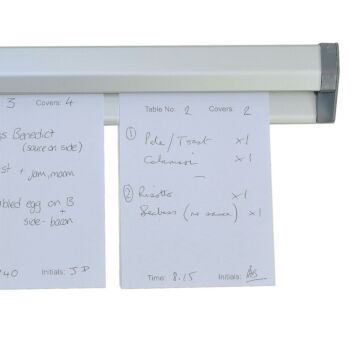 3 Covers: 4
gs Benedict
(sauce on side)
st + jam, marm
bled egg on B
+
side - bacon
:40 Initials: JD
Table No: 2 Covers: 2
① Pate / Toast x1
Calamari x1
—
② Risotto x1
Seabass (no sauce) x1
Time: 8.15 Initials: